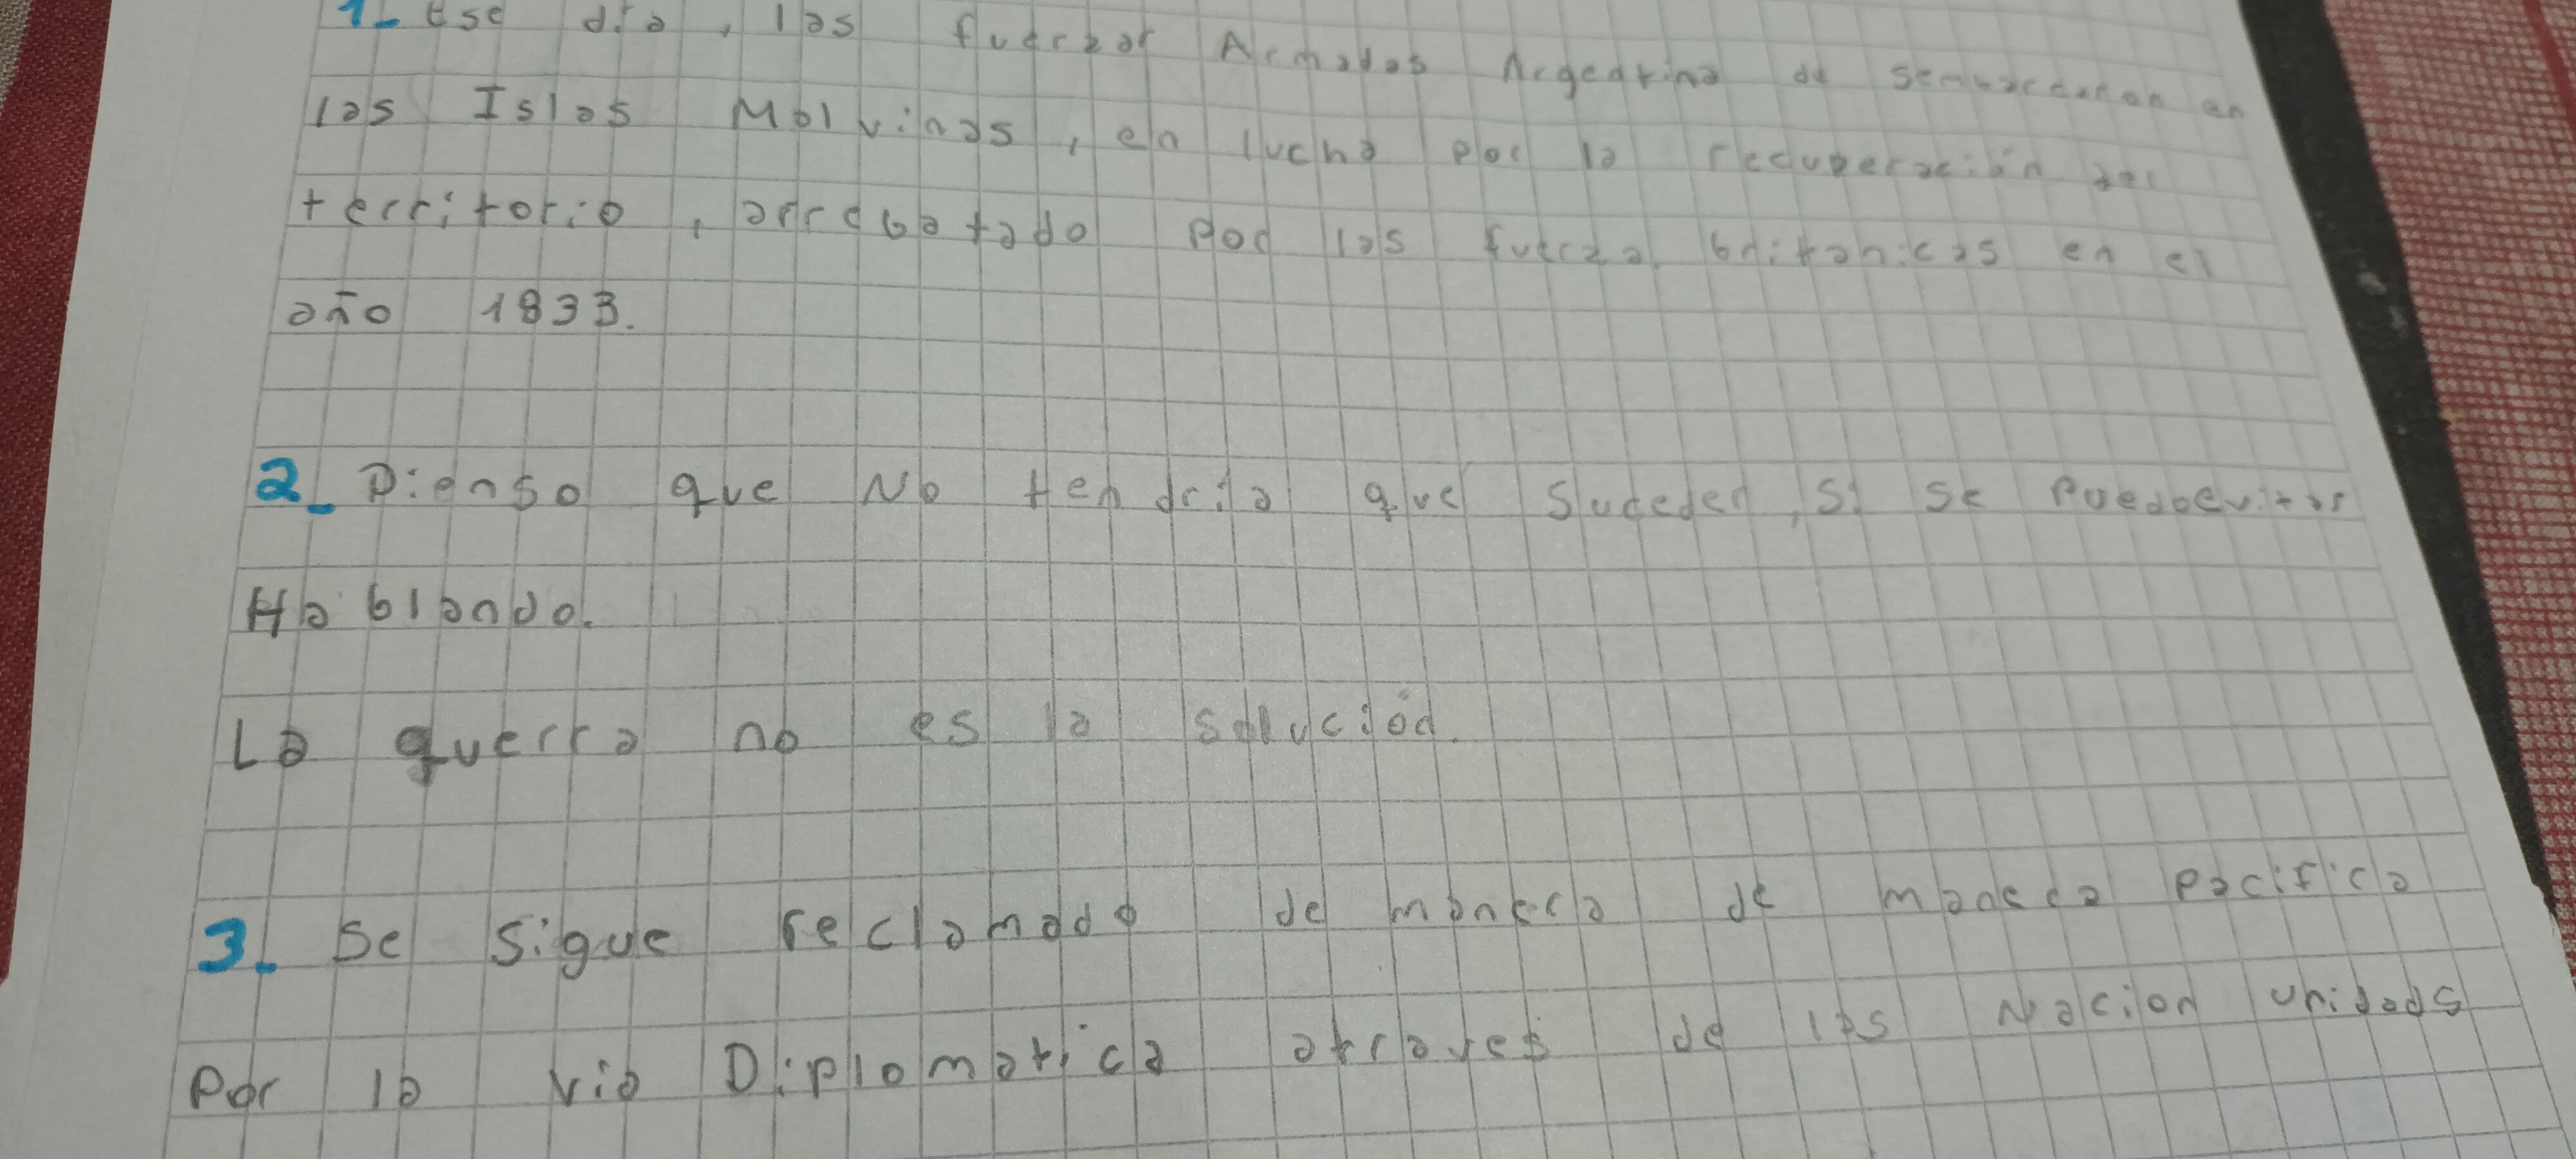 1_ Ese día, las fuerzas Armadas Argentina de sembarcaron en
las Islas Malvinas, en lucha por la recuperación del
territorio, arrebatado por las fuerza britanicas en el
año 1833.
2_ Pienso que No tendría que Suceder, si se Puedoevitar
Hablando.
La guerra no es la solución.
3_ Se sigue reclamado de manera de manera pacifica
Por la via Diplomatica atraves de las Nacion unidads